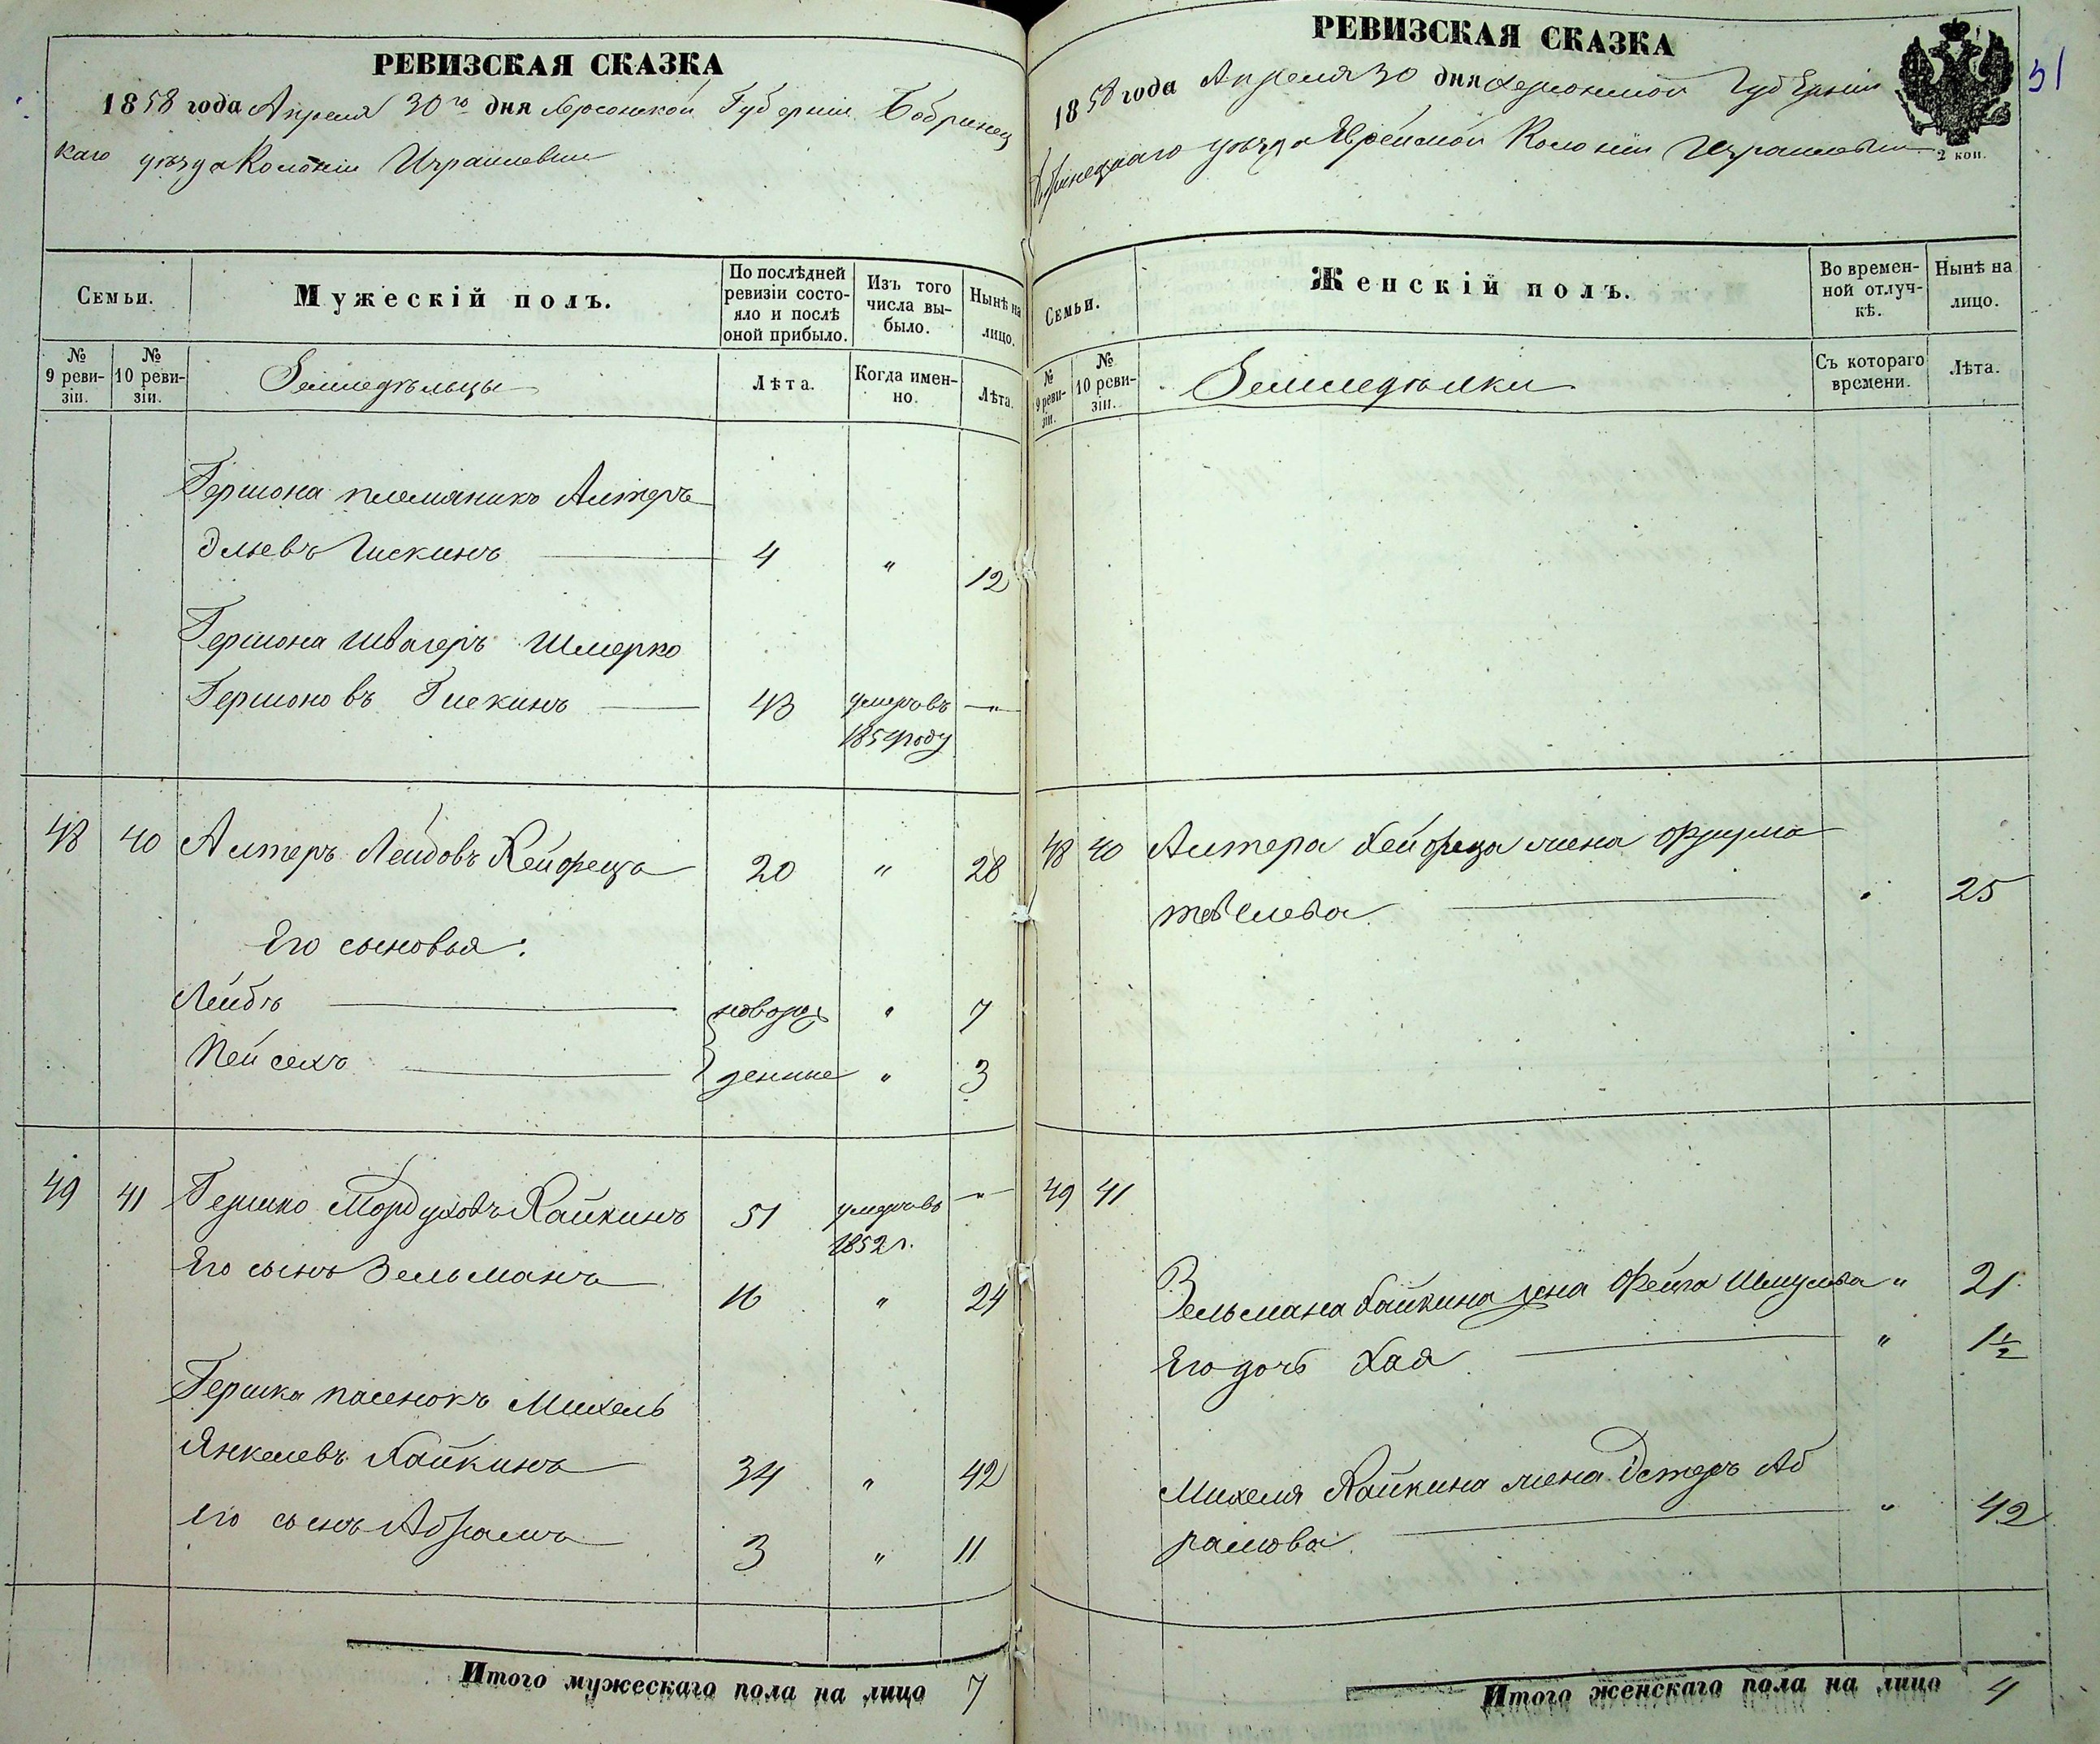 РЕВИЗСКАЯ СКАЗКА
1858 года Апреля 30го дня Херсонской Губерніи Бобринец
каго уѣзда Колоніи Израилевки
Семьи.
Мужескій полъ.
По послѣдней ревизіи состояло и послѣ оной прибыло.
Изъ того числа выбыло.
Нынѣ на лицо.
№ 9 ревизіи.
№ 10 ревизіи.
Земледѣльцы
Лѣта.
Когда именно.
Лѣта.
Гершона племяникъ Алтеръ
Эльевъ Гискинъ 4 " 12
Гершона швагеръ Шмерко
Гершоновъ Гискинъ 43 умеръ въ "
1854 году
48 40 Алтеръ Лейбовъ Хейфеца 20 " 28
Его сыновья:
Лейбъ новорож " 7
Пейсехъ денные " 3
49 41 Гершко Мордуховъ Хайкинъ 51 умеръ въ "
1852 г.
Его сынъ Зельманъ 16 " 24
Гершка пасенокъ Михель
Янкелевъ Хайкинъ 34 " 42
Его сынъ Абрамъ 3 " 11
Итого мужескаго пола на лицо 7
РЕВИЗСКАЯ СКАЗКА
1858 года Апреля 30 дня Херсонской Губерніи
Бобринецкаго уѣзда Еврейской Колоніи Израилевки
2 коп.
51
Семьи.
Женскій полъ.
Во временной отлучкѣ.
Нынѣ на лицо.
№ 9 ревизіи.
№ 10 ревизіи.
Земледѣлки
Съ котораго времени.
Лѣта.
48 40 Алтера Хейфеца жена Фрума
тевелева " 25
49 41
Зельмана Хайкина жена Фейга Шмулева " 21
Его дочь Хая " 1½
Михеля Хайкина жена Эстеръ Аб
рамова " 42
Итого женскаго пола на лицо 4